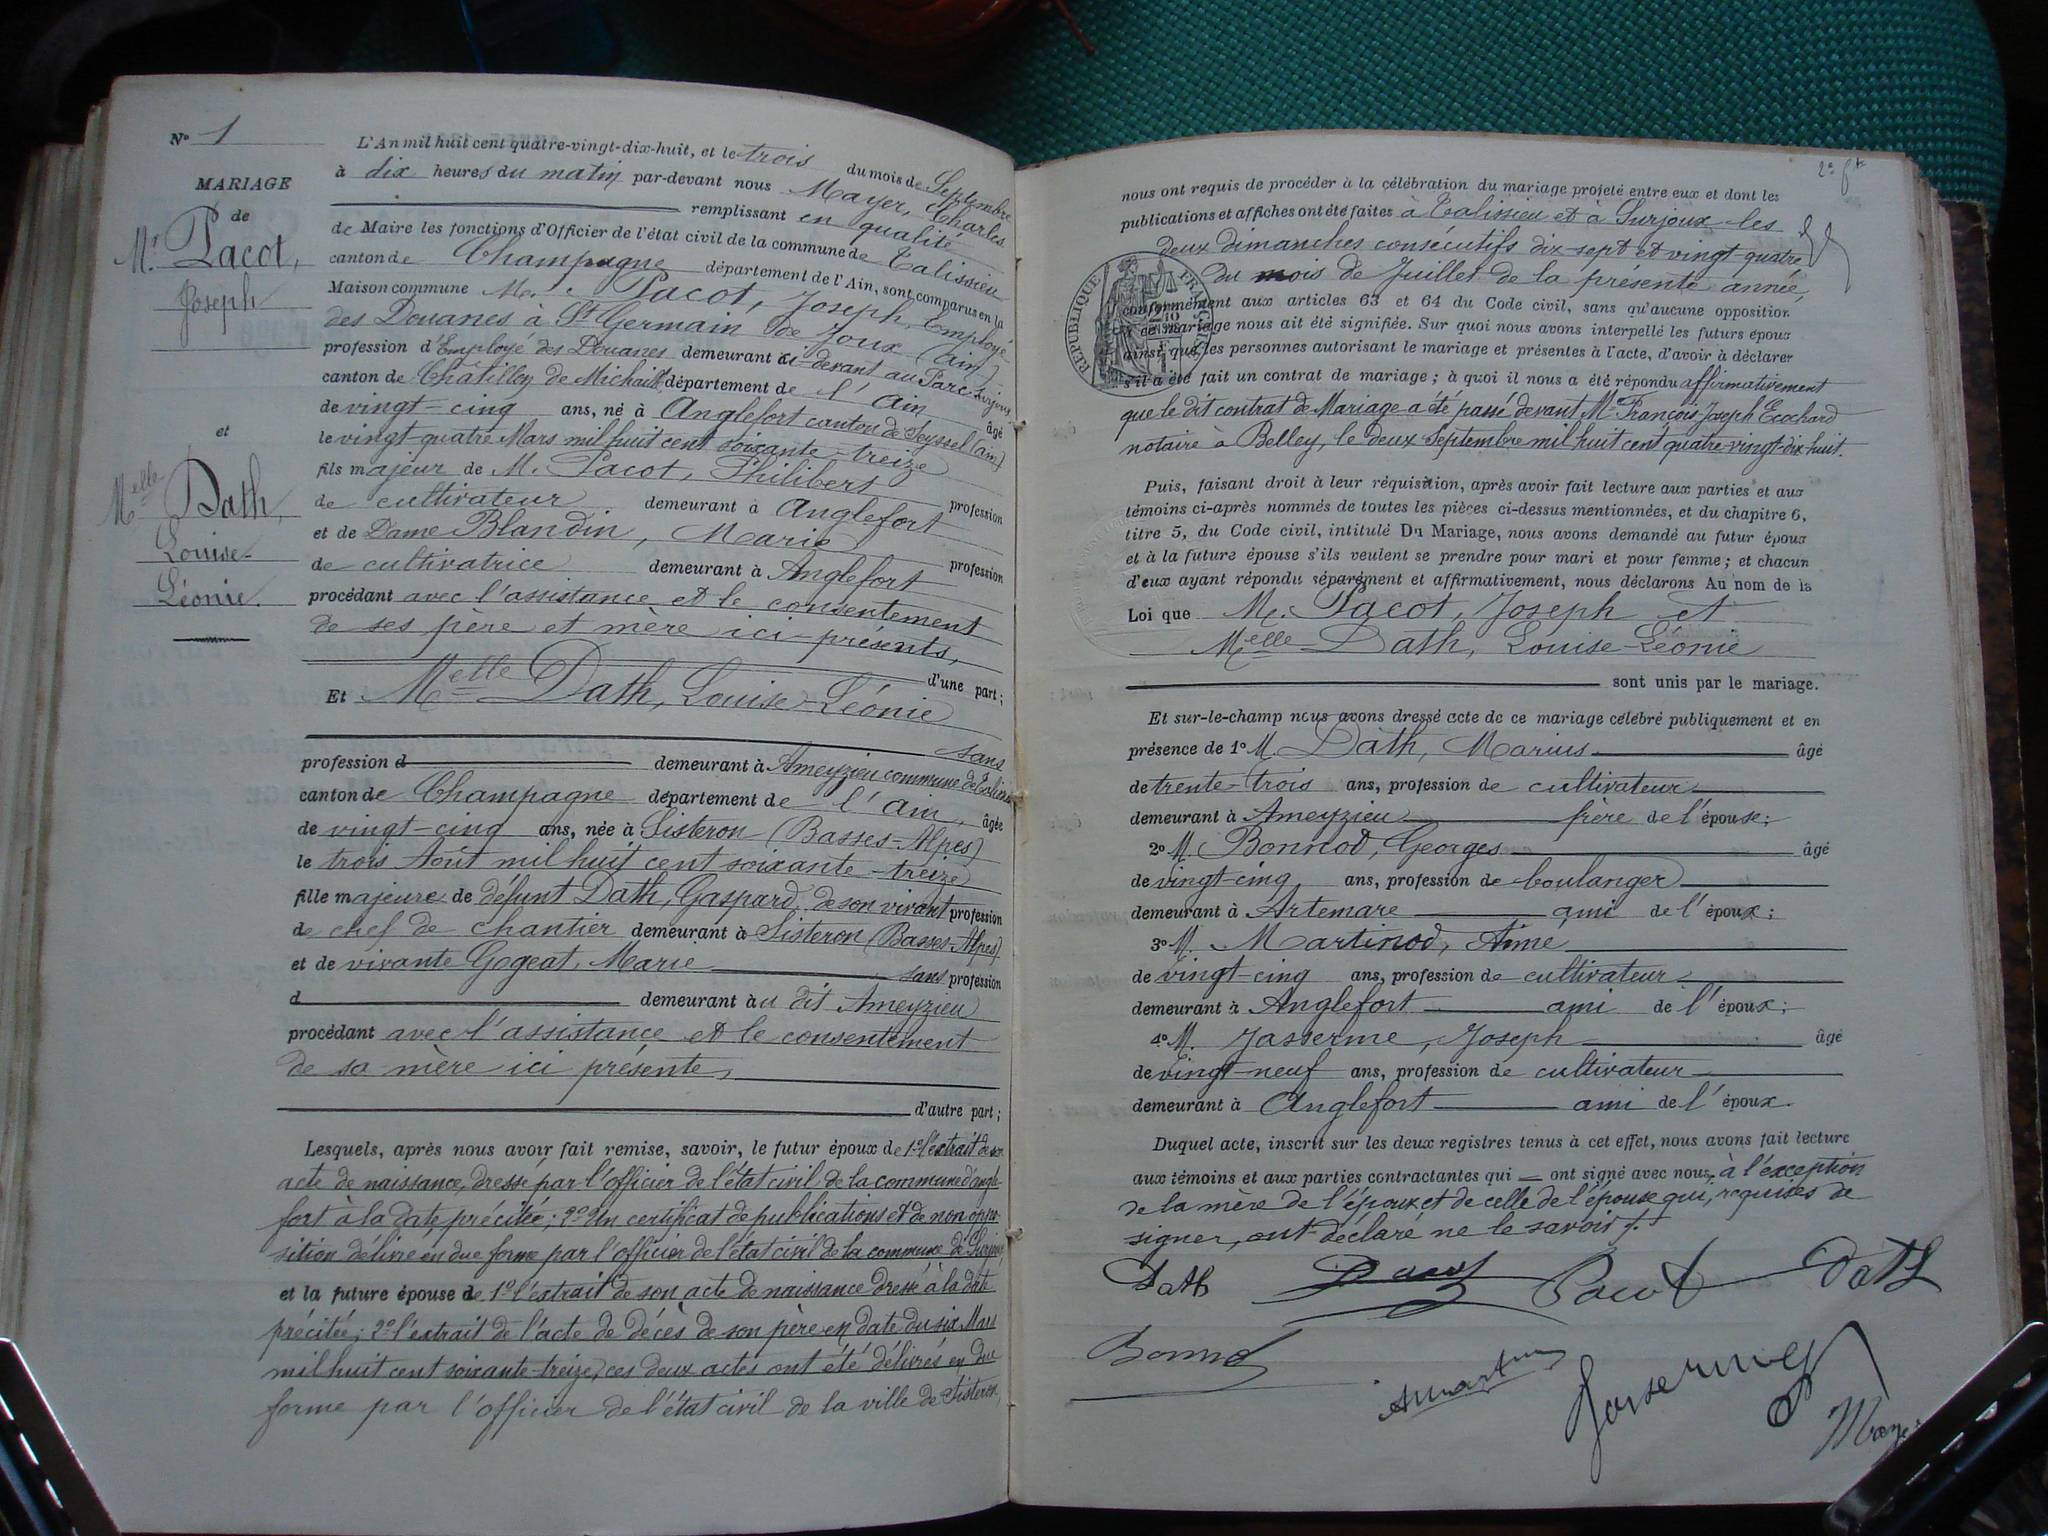 No 1
MARIAGE
de
Mr. Pacot,
Joseph
et
Melle Dath,
Louise-
Léonie.
L'An mil huit cent quatre-vingt-dix-huit, et le trois du mois de Septembre
à dix heures du matin par-devant nous Mayer, Charles
remplissant en qualité
de Maire les fonctions d'Officier de l'état civil de la commune de Talissieu
canton de Champagne département de l'Ain, sont comparus en la
Maison commune M. Pacot, Joseph, Employé
des Douanes à St Germain de Joux (Ain)
profession d'Employé des Douanes demeurant ci-devant au Parc Surjoux
canton de Châtillon de Michaille département de l'Ain âgé
de vingt-cinq ans, né à Anglefort canton de Seyssel (Ain)
le vingt-quatre Mars mil huit cent soixante-treize
fils majeur de M. Pacot, Philibert profession
de cultivateur demeurant à Anglefort
et de Dame Blandin, Marie profession
de cultivatrice demeurant à Anglefort
procédant avec l'assistance et le consentement
de ses père et mère ici-présents,
d'une part;
Et Melle Dath, Louise-Léonie
sans
profession d demeurant à Ameyzieu commune de Talissieu
canton de Champagne département de l'Ain, âgée
de vingt-cinq ans, née à Sisteron (Basses-Alpes)
le trois Août mil huit cent soixante-treize
fille majeure de défunt Dath, Gaspard, de son vivant profession
de chef de chantier demeurant à Sisteron (Basses-Alpes)
et de vivante Gogeat, Marie sans profession
d demeurant à u dit Ameyzieu
procédant avec l'assistance et le consentement
de sa mère ici présente,
d'autre part;
Lesquels, après nous avoir fait remise, savoir, le futur époux de 1o l'extrait de son
acte de naissance, dressé par l'officier de l'état civil de la commune d'Angle-
fort à la date précitée; 2o d'un certificat de publications et de non oppo-
sition délivré en due forme par l'officier de l'état civil de la commune de Surjoux
et la future épouse de 1o l'extrait de son acte de naissance dressé à la date
précitée; 2o l'extrait de l'acte de décès de son père en date du six Mars
mil huit cent soixante-treize, ces deux actes ont été délivrés en due
forme par l'officier de l'état civil de la ville de Sisteron,
2e ft
nous ont requis de procéder à la célébration du mariage projeté entre eux et dont les
publications et affiches ont été faites à Talissieu et à Surjoux les
deux dimanches consécutifs dix-sept et vingt-quatre
du mois de Juillet de la présente année,
conformément aux articles 63 et 64 du Code civil, sans qu'aucune opposition
à ce mariage nous ait été signifiée. Sur quoi nous avons interpellé les futurs époux
ainsi que les personnes autorisant le mariage et présentes à l'acte, d'avoir à déclarer
s'il a été fait un contrat de mariage; à quoi il nous a été répondu affirmativement
que le dit contrat de Mariage a été passé devant Me François Joseph Ecochard
notaire à Belley, le deux Septembre mil huit cent quatre-vingt-dix huit.
REPUBLIQUE FRANÇAISE
Puis, faisant droit à leur réquisition, après avoir fait lecture aux parties et aux
témoins ci-après nommés de toutes les pièces ci-dessus mentionnées, et du chapitre 6,
titre 5, du Code civil, intitulé Du Mariage, nous avons demandé au futur époux
et à la future épouse s'ils veulent se prendre pour mari et pour femme; et chacun
d'eux ayant répondu séparément et affirmativement, nous déclarons Au nom de la
Loi que M. Pacot, Joseph et
Melle Dath, Louise-Léonie
sont unis par le mariage.
Et sur-le-champ nous avons dressé acte de ce mariage célébré publiquement et en
présence de 1o M. Dath, Marius âgé
de trente-trois ans, profession de cultivateur
demeurant à Ameyzieu frère de l'épouse;
2o M. Bonnod, Georges âgé
de vingt-cinq ans, profession de boulanger
demeurant à Artemare ami de l'époux;
3o M. Martinod, Aimé
de vingt-cinq ans, profession de cultivateur
demeurant à Anglefort ami de l'époux;
4o M. Jasserme, Joseph âgé
de vingt-neuf ans, profession de cultivateur
demeurant à Anglefort ami de l'époux.
Duquel acte, inscrit sur les deux registres tenus à cet effet, nous avons fait lecture
aux témoins et aux parties contractantes qui ont signé avec nous, à l'exception
de la mère de l'époux et de celle de l'épouse qui, requises de
signer, ont déclaré ne le savoir /.
Dath Pacot Pacot Dath
Bonnod
Jasserme
Mayer